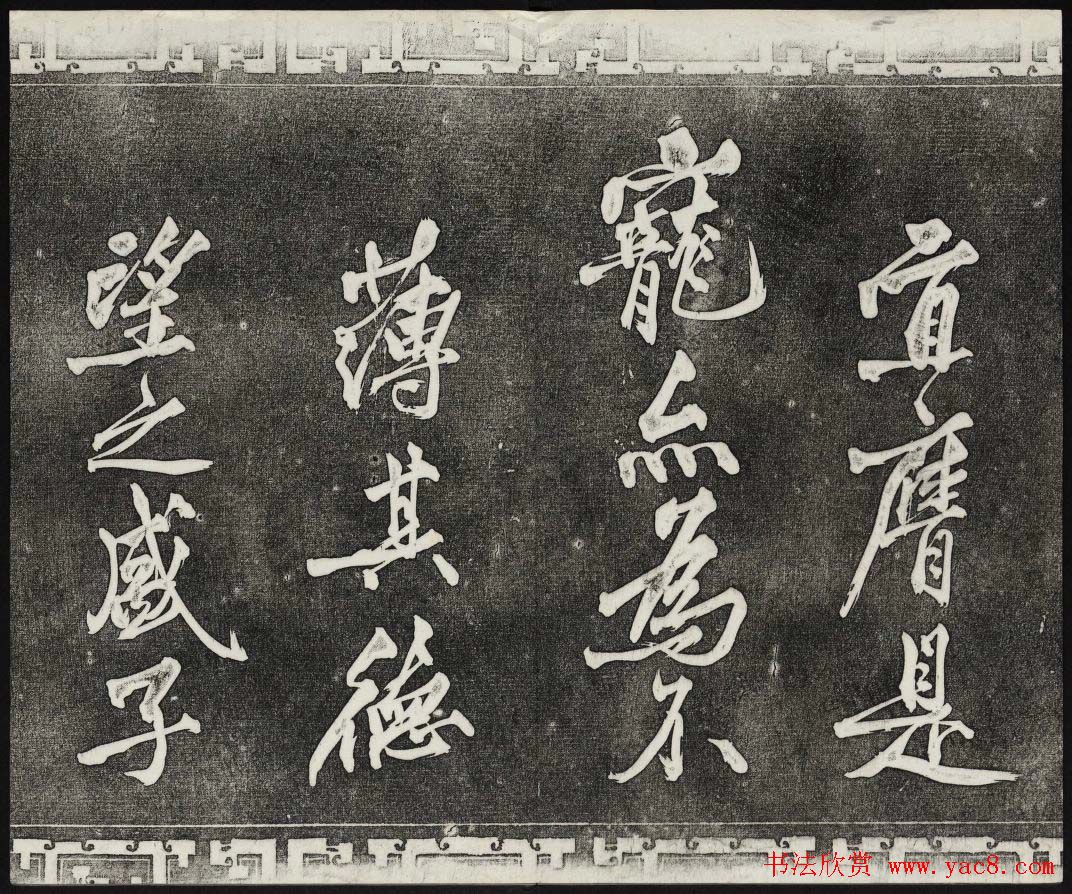 宜膺是
寵亦為不
薄其德
望之盛子
书法欣赏 www.yac8.com